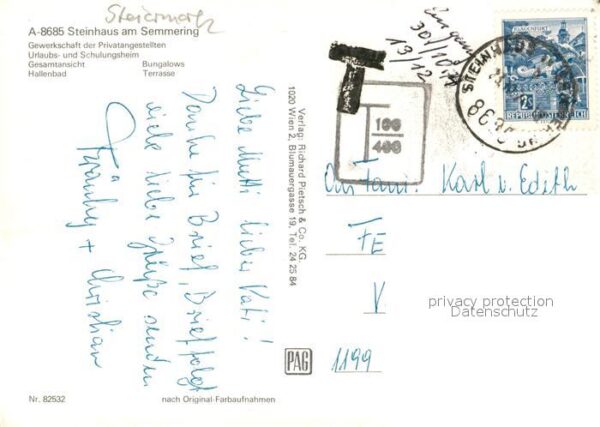 Steiermark
A-8685 Steinhaus am Semmering
Gewerkschaft der Privatangestellten
Urlaubs- und Schulungsheim
Gesamtansicht Bungalows
Hallenbad Terrasse
Liebe Mutti, lieber Kati!
Danke für Brief, Brief folgt
viele liebe Grüße senden
+ Christian
Verlag: Richard Pietsch & Co. KG.
1020 Wien 2, Blumauergasse 19, Tel. 24 25 84
PAG
Nr. 82532
nach Original-Farbaufnahmen
13/12
T
T 100
400
STEINHAUS
8685
KLAGENFURT
2 S
REPUBLIK ÖSTERREICH
An Fam. Karl u. Edith
FE
V
1199
privacy protection
Datenschutz